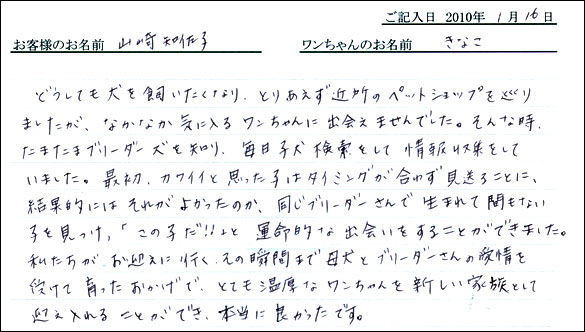 ご記入日 2010年 1月 16日
お客様のお名前 山崎 知佐子 ワンちゃんのお名前 きなこ
どうしても犬を飼いたくなり、とりあえず近所のペットショップを巡り
ましたが、なかなか気に入るワンちゃんに出会えませんでした。そんな時、
たまたまブリーダー犬を知り、毎日子犬検索をして情報収集をして
いました。最初、カワイイと思った子はタイミングが合わず見送ることに、
結果的にはそれがよかったのか、同じブリーダーさんで生まれて間もない
子を見つけ、「この子だ!!」と運命的な出会いをすることができました。
私たちがお迎えに行く、その瞬間まで母犬とブリーダーさんの愛情を
受けて育ったおかげで、とても温厚なワンちゃんを新しい家族として
迎え入れることができ、本当に良かったです。